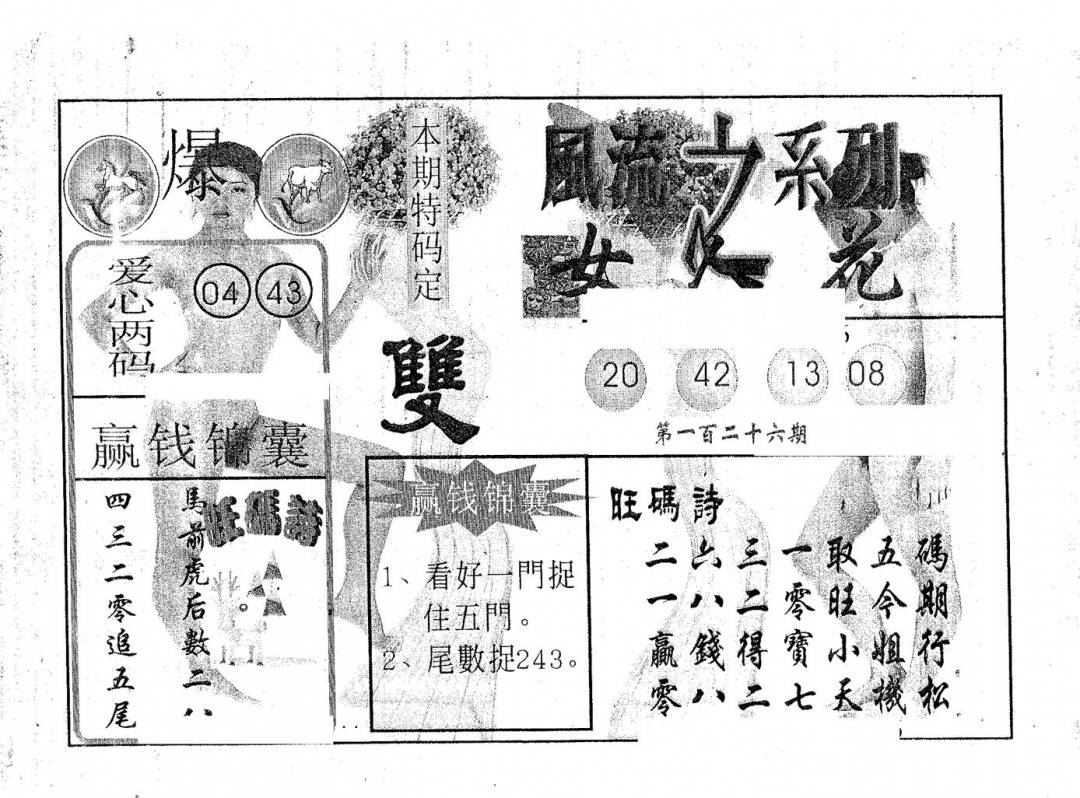 爆
爱心两码
04 43
赢钱锦囊
旺碼詩
馬前虎后數二八
四三二零追五尾
本期特码定
雙
赢钱锦囊
1、看好一門捉
住五門。
2、尾數捉243。
風流之系列
女人花
20 42 13 08
第一百二十六期
旺碼詩
二六三一取五碼
一八二零旺今期
贏錢得寶小姐行
零八二七天機松